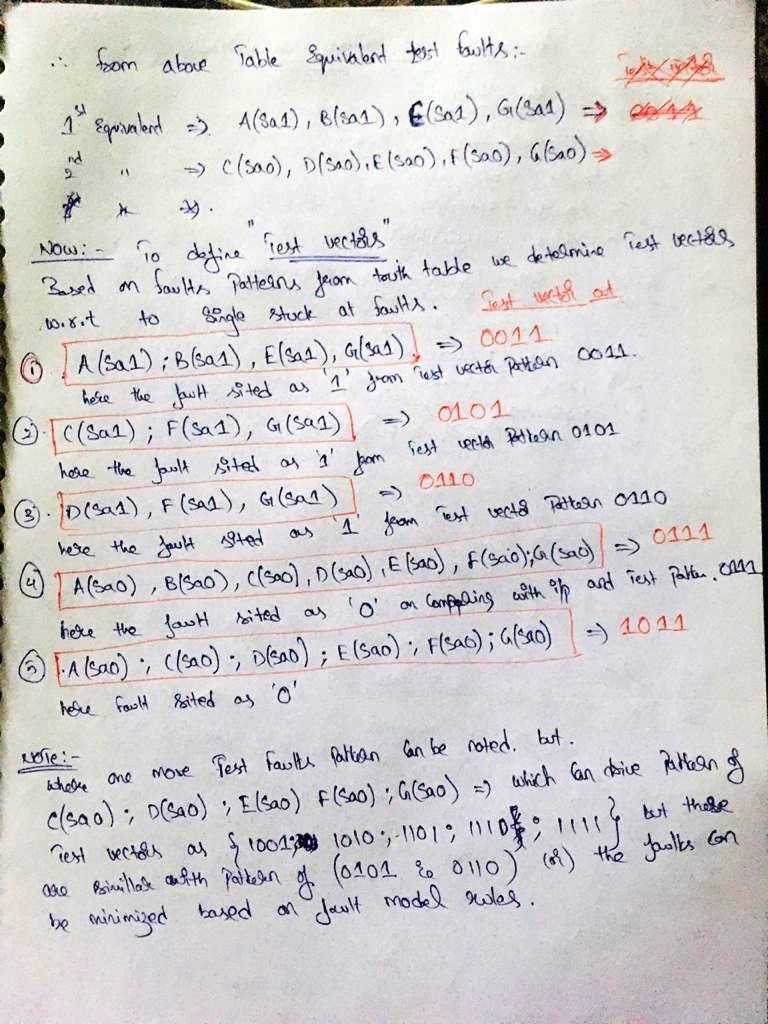 ∴ from above Table Equivalent test faults:-
1st Equivalent => A(Sa1), B(Sa1), E(Sa1), G(Sa1) =>
2nd " => C(Sa0), D(Sa0), E(Sa0), F(Sa0), G(Sa0) =>
Now:- To define "Test vectors"
Based on faults Patterns from truth table we determine Test vectors
w.r.t to Single stuck at faults. Test vector out
① A(Sa1); B(Sa1), E(Sa1), G(Sa1) => 0011
here the fault sited as '1' from Test vector Pattern 0011.
②. C(Sa1); F(Sa1), G(Sa1) => 0101
here the fault sited as '1' from Test vector Pattern 0101
③. D(Sa1), F(Sa1), G(Sa1) => 0110
here the fault sited as '1' from Test vector Pattern 0110
④ A(Sa0), B(Sa0), C(Sa0), D(Sa0), E(Sa0), F(Sa0); G(Sa0) => 0111
here the fault sited as '0' on Comparing with i/p and Test Patten. 0111
⑤ A(Sa0); C(Sa0); D(Sa0); E(Sa0); F(Sa0); G(Sa0) => 1011
here fault sited as '0'
NOTE:-
where one more Test Faults Pattern Can be noted. but.
C(Sa0); D(Sa0); E(Sa0) F(Sa0); G(Sa0) => which Can drive Pattern of
Test vectors as {1001; 1010; 1101; 1110; 1111} but these
are Similar with Pattern of (0101 & 0110) (or) the faults Can
be minimized based on fault model rules.